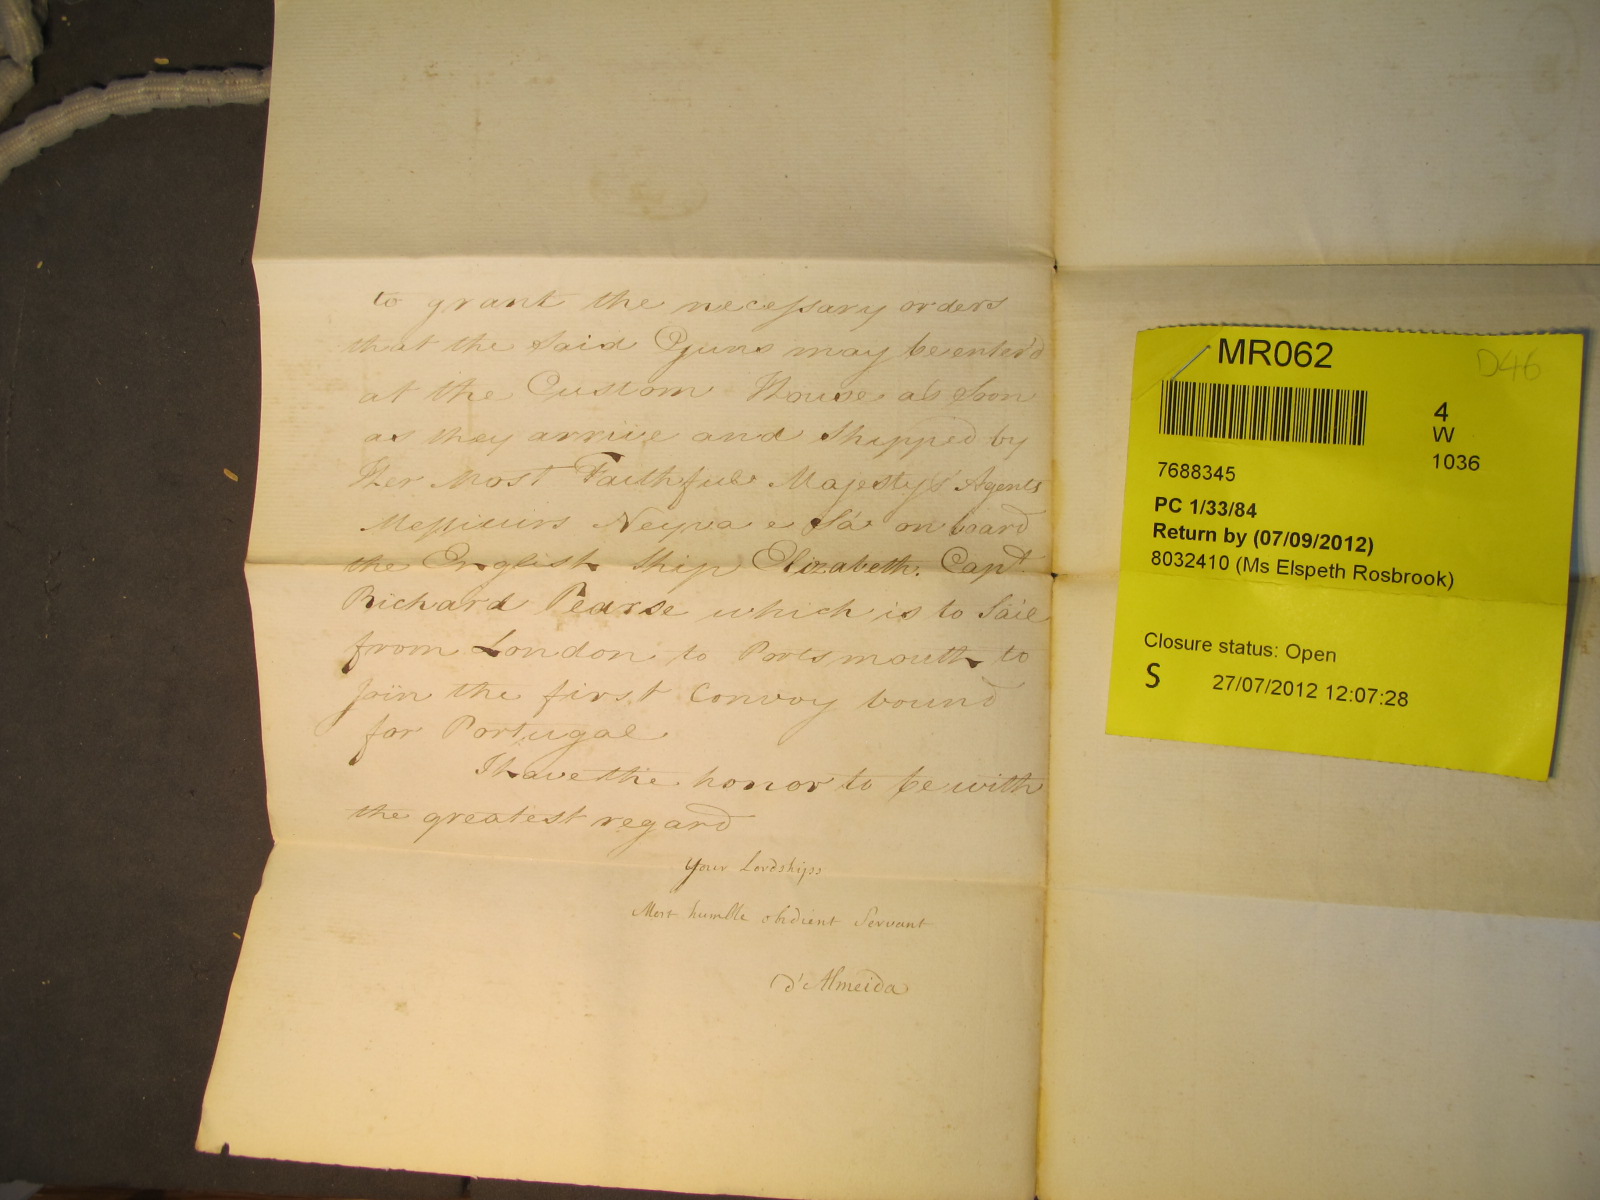 to grant the necessary orders
that the Said Guns may be enter'd
at the Custom House as Soon
as they arrive and Shipped by
Her Most Faithful Majesty's Agents
Messieurs Neyva e Sá on board
the English Ship Elizabeth. Capt.
Richard Pearse which is to Sail
from London to Portsmouth to
Join the first Convoy bound
for Portugal.
I have the honor to be with
the greatest regard
Your Lordships
Most humble obedient Servant
d'Almeida
MR062
D46
4
W
1036
7688345
PC 1/33/84
Return by (07/09/2012)
8032410 (Ms Elspeth Rosbrook)
Closure status: Open
S
27/07/2012 12:07:28